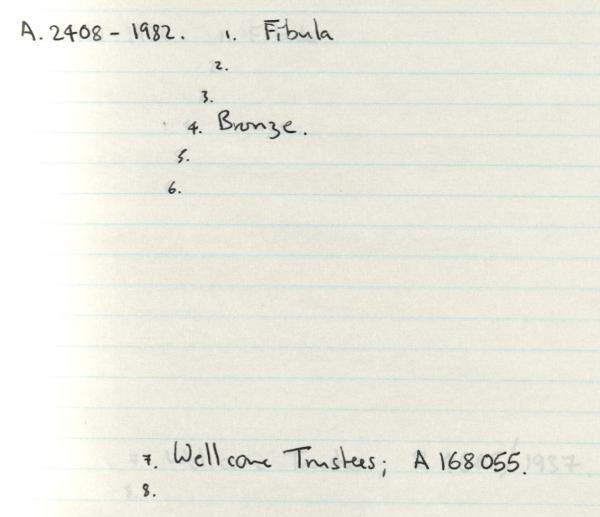 A. 2408 - 1982. 1. Fibula
2.
3.
4. Bronze.
5.
6.
7. Wellcome Trustees; A 168055.
8.